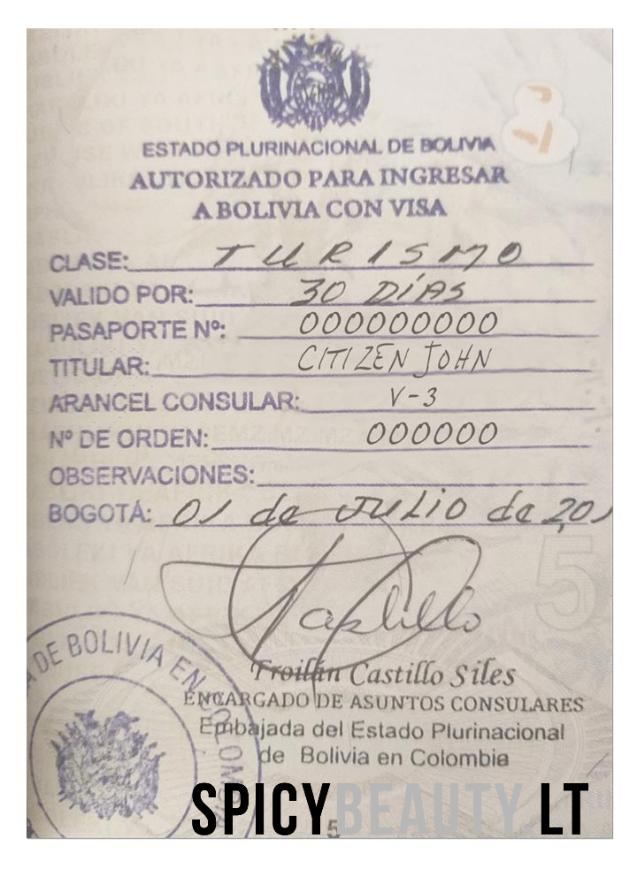 ESTADO PLURINACIONAL DE BOLIVIA
AUTORIZADO PARA INGRESAR
A BOLIVIA CON VISA
CLASE: TURISMO
VALIDO POR: 30 DÍAS
PASAPORTE Nº: 000000000
TITULAR: CITIZEN JOHN
ARANCEL CONSULAR: V-3
Nº DE ORDEN: 000000
OBSERVACIONES:
BOGOTÁ: 01 de JULIO de 201
Castillo
Froilán Castillo Siles
ENCARGADO DE ASUNTOS CONSULARES
Embajada del Estado Plurinacional
de Bolivia en Colombia
DE BOLIVIA EN COLOMBIA
SPICYBEAUTY.LT
5